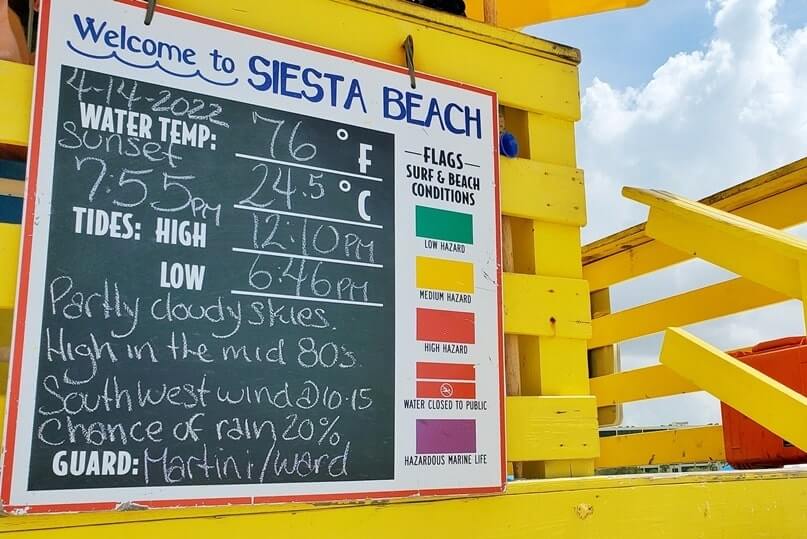 Welcome to SIESTA BEACH
4-14-2022
WATER TEMP: 76 °F
sunset
7:55pm 24.5 °C
TIDES: HIGH 12:10PM
LOW 6:46PM
Partly cloudy skies.
High in the mid 80's.
Southwest wind @ 10-15
chance of rain 20%
GUARD: Martini/Ward
FLAGS
SURF & BEACH
CONDITIONS
LOW HAZARD
MEDIUM HAZARD
HIGH HAZARD
WATER CLOSED TO PUBLIC
HAZARDOUS MARINE LIFE